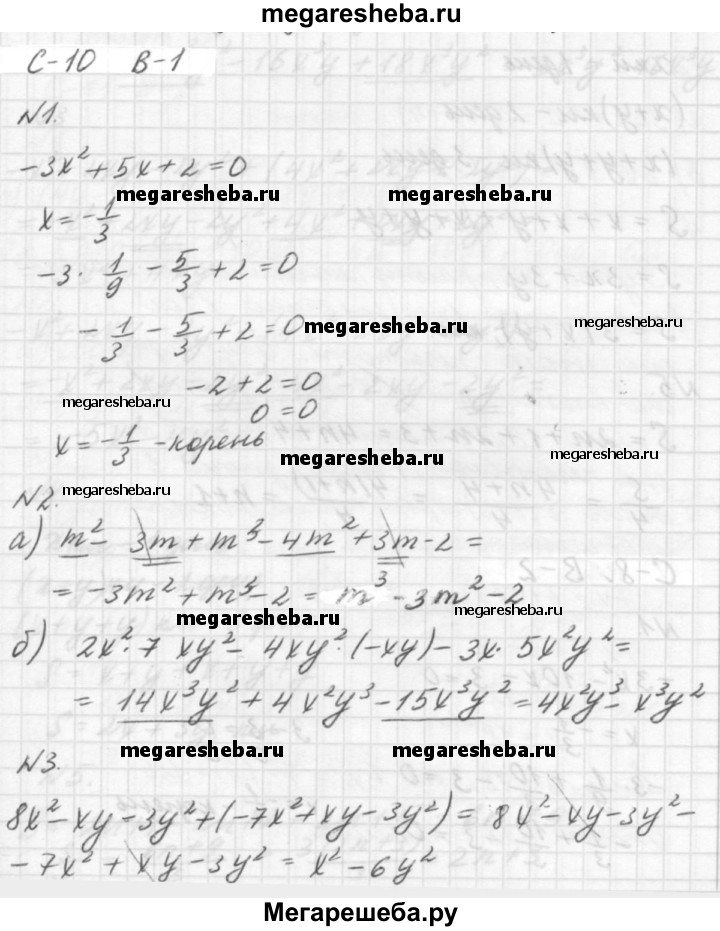 megaresheba.ru
С-10 В-1
№1.
-3x² + 5x + 2 = 0
megaresheba.ru megaresheba.ru
x = -1/3
-3 · 1/9 - 5/3 + 2 = 0
-1/3 - 5/3 + 2 = 0 megaresheba.ru megaresheba.ru
-2 + 2 = 0
megaresheba.ru
0 = 0
x = -1/3 - корень megaresheba.ru megaresheba.ru
№2. megaresheba.ru
а) m² - 3m + m³ - 4m² + 3m - 2 =
= -3m² + m³ - 2 = m³ - 3m² - 2
megaresheba.ru megaresheba.ru
б) 2x² · 7 xy² - 4xy² · (-xy) - 3x · 5x²y² =
= 14x³y² + 4x²y³ - 15x³y² = 4x²y³ - x³y²
megaresheba.ru megaresheba.ru
№3.
8x² - xy - 3y² + (-7x² + xy - 3y²) = 8x² - xy - 3y² -
- 7x² + xy - 3y² = x² - 6y²
Мегарешеба.ру